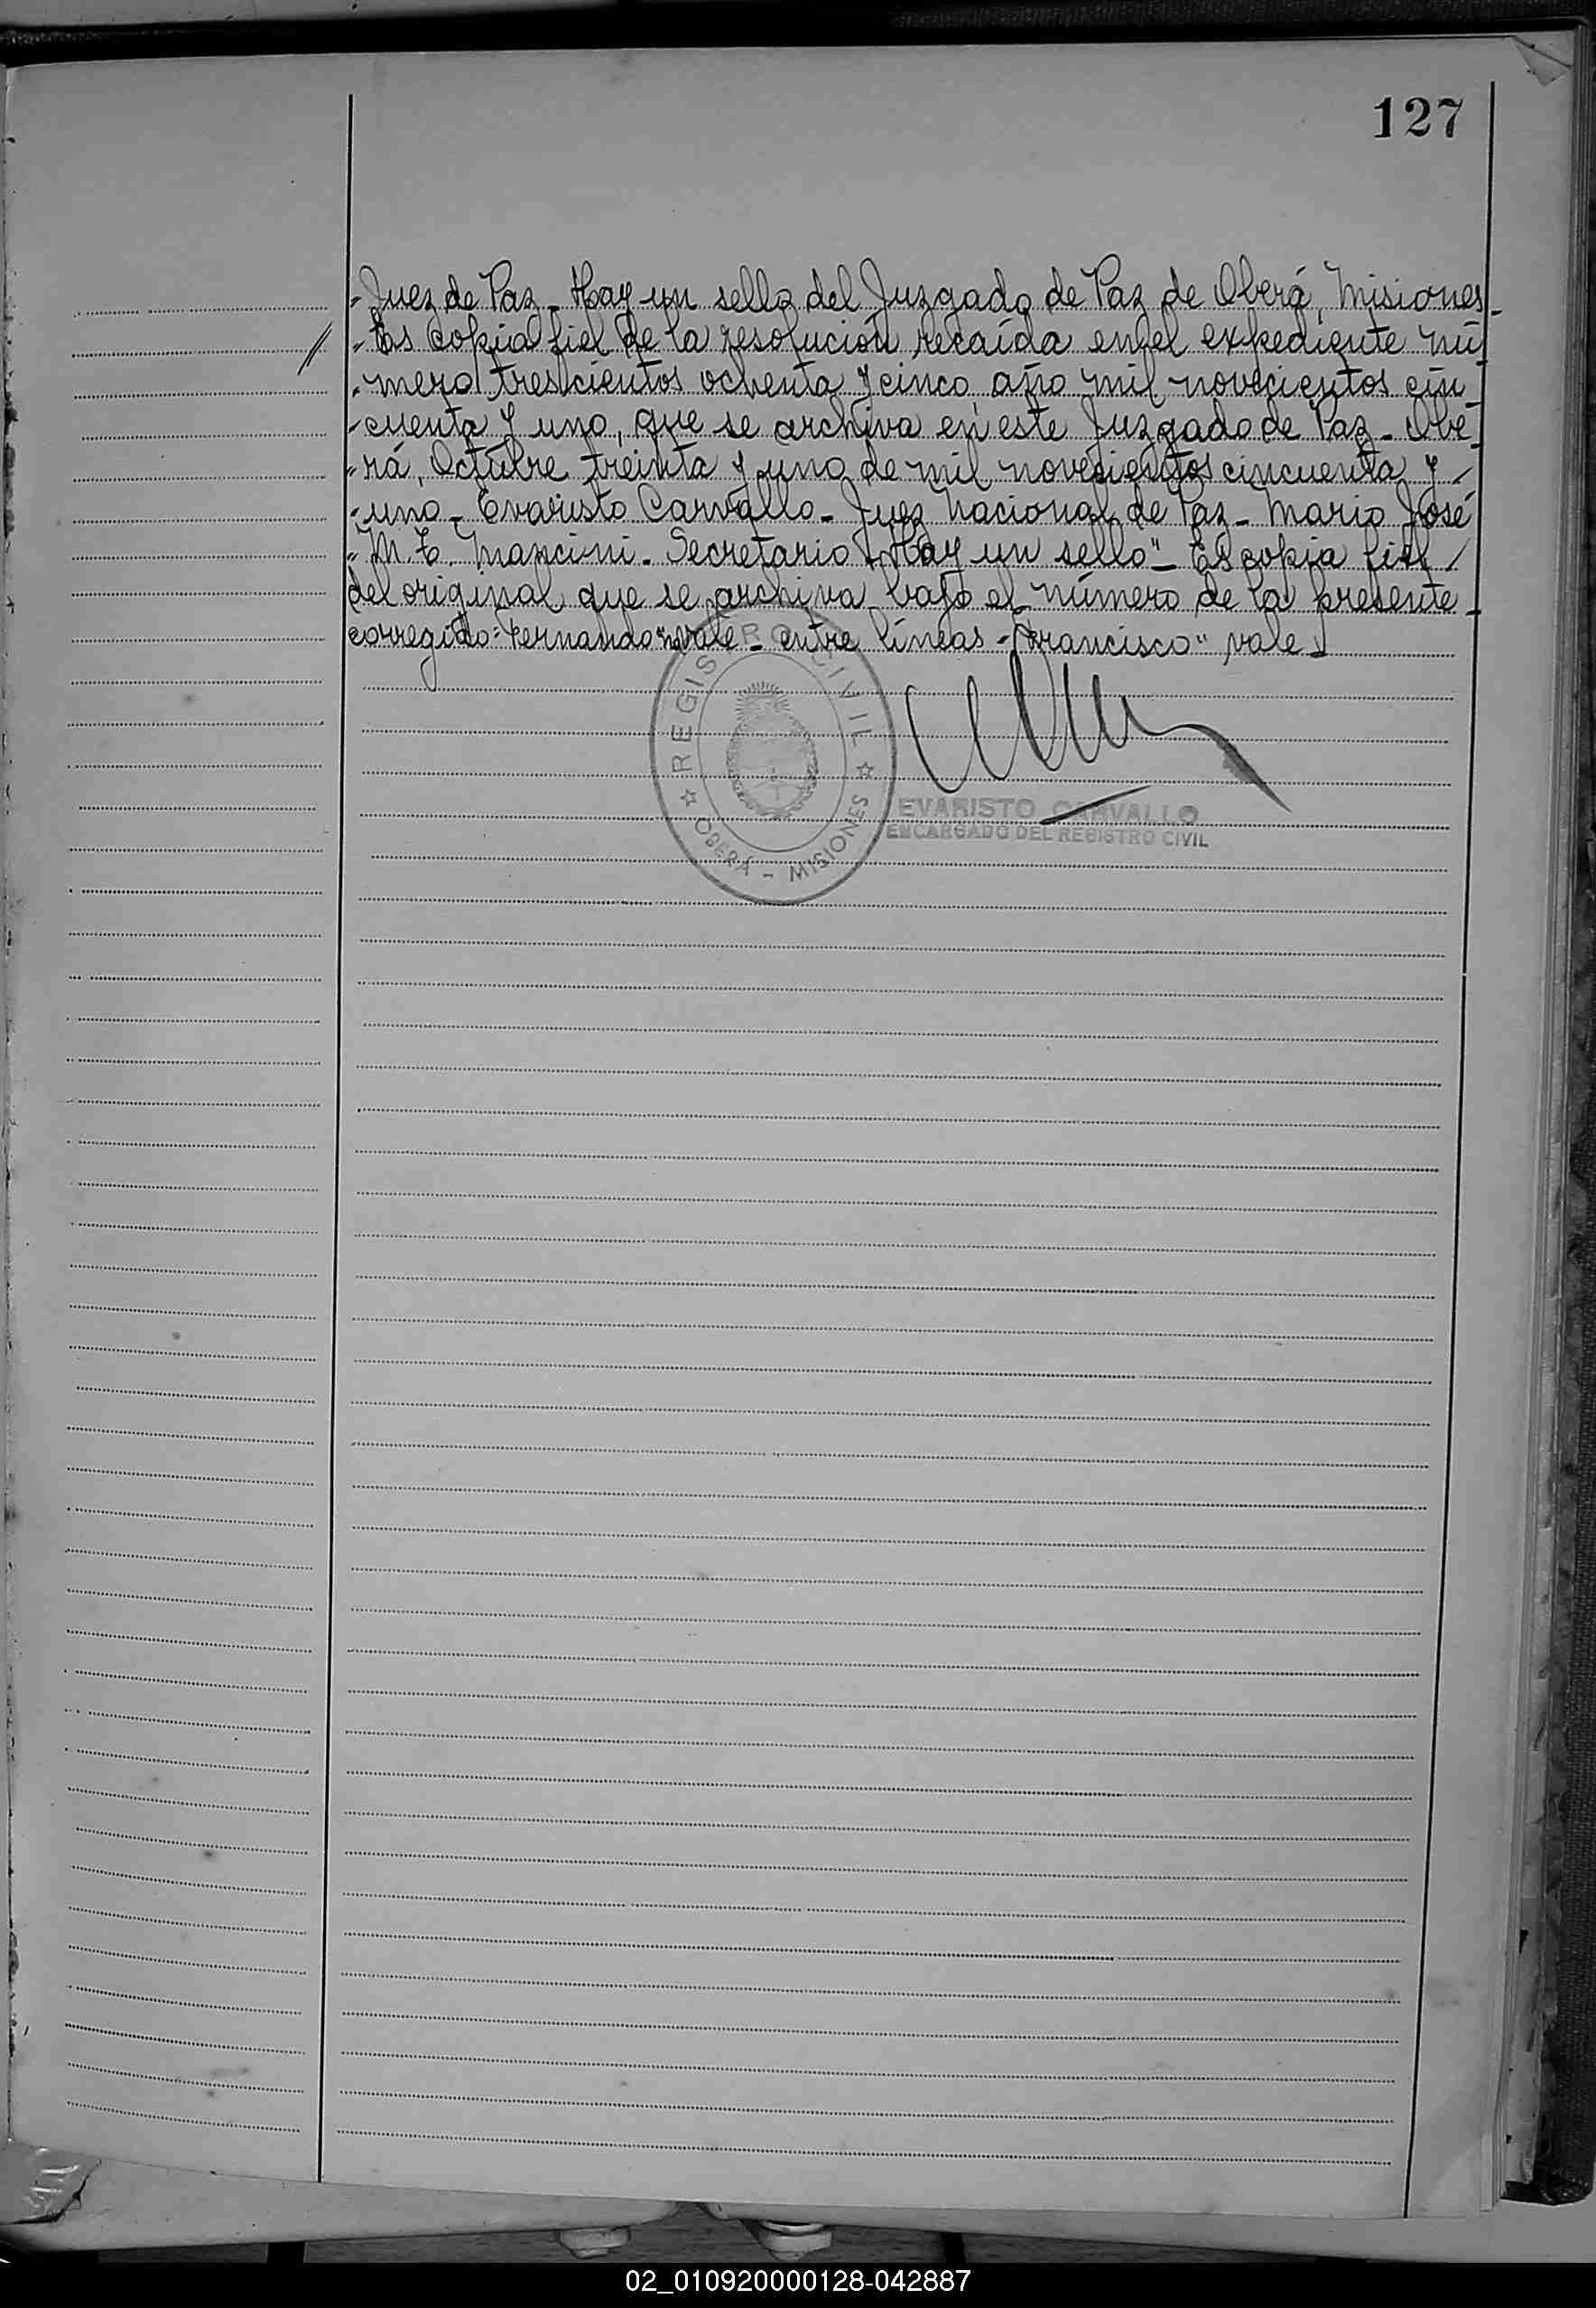 127
"Juez de Paz_ Hay un sello del Juzgado de Paz de Oberá, Misiones_
"Es copia fiel de la resolución recaída en el expediente nú
"mero trescientos ochenta y cinco, año mil novecientos cin_
"cuenta y uno, que se archiva en este Juzgado de Paz_ Obe_
"rá, Octubre treinta y uno de mil novecientos cincuenta y
"uno_ Evaristo Carvallo_ Juez Nacional de Paz_ Mario José
"M. E. Mancini_ Secretario_ Hay un sello"_ Es copia fiel
del original que se archiva bajo el número de la presente_
corregido: "Fernando" vale_ entre líneas "Francisco" vale_
REGISTRO CIVIL
OBERÁ - MISIONES
EVARISTO CARVALLO
ENCARGADO DEL REGISTRO CIVIL
02_010920000128-042887